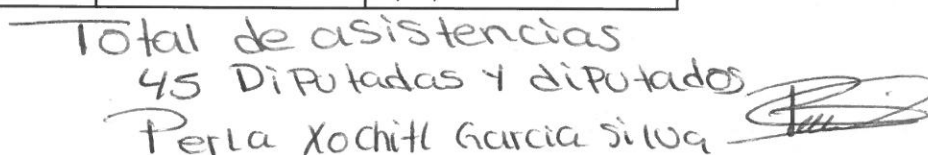 Total de asistencias
45 Diputadas y diputados
Perla Xochitl Garcia Silva